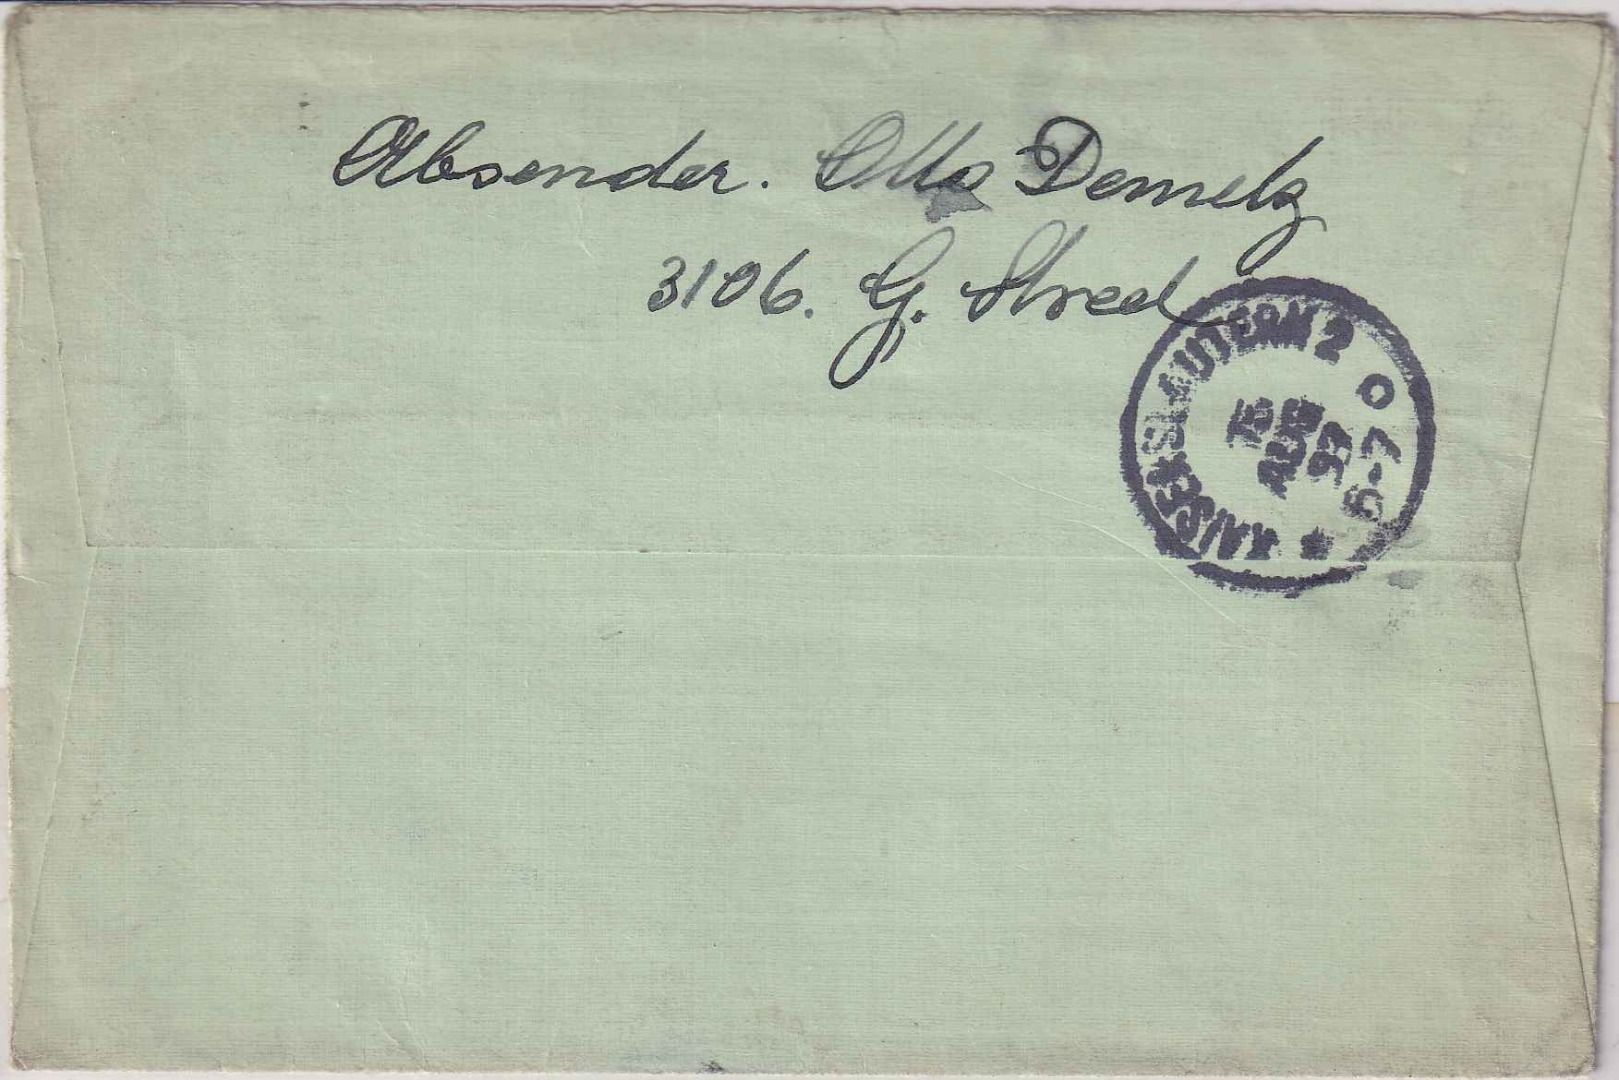 Absender. Otto Demetz
3106. G. Street
KAISERSLAUTERN 2 O
15
AUG
37
6-7
*